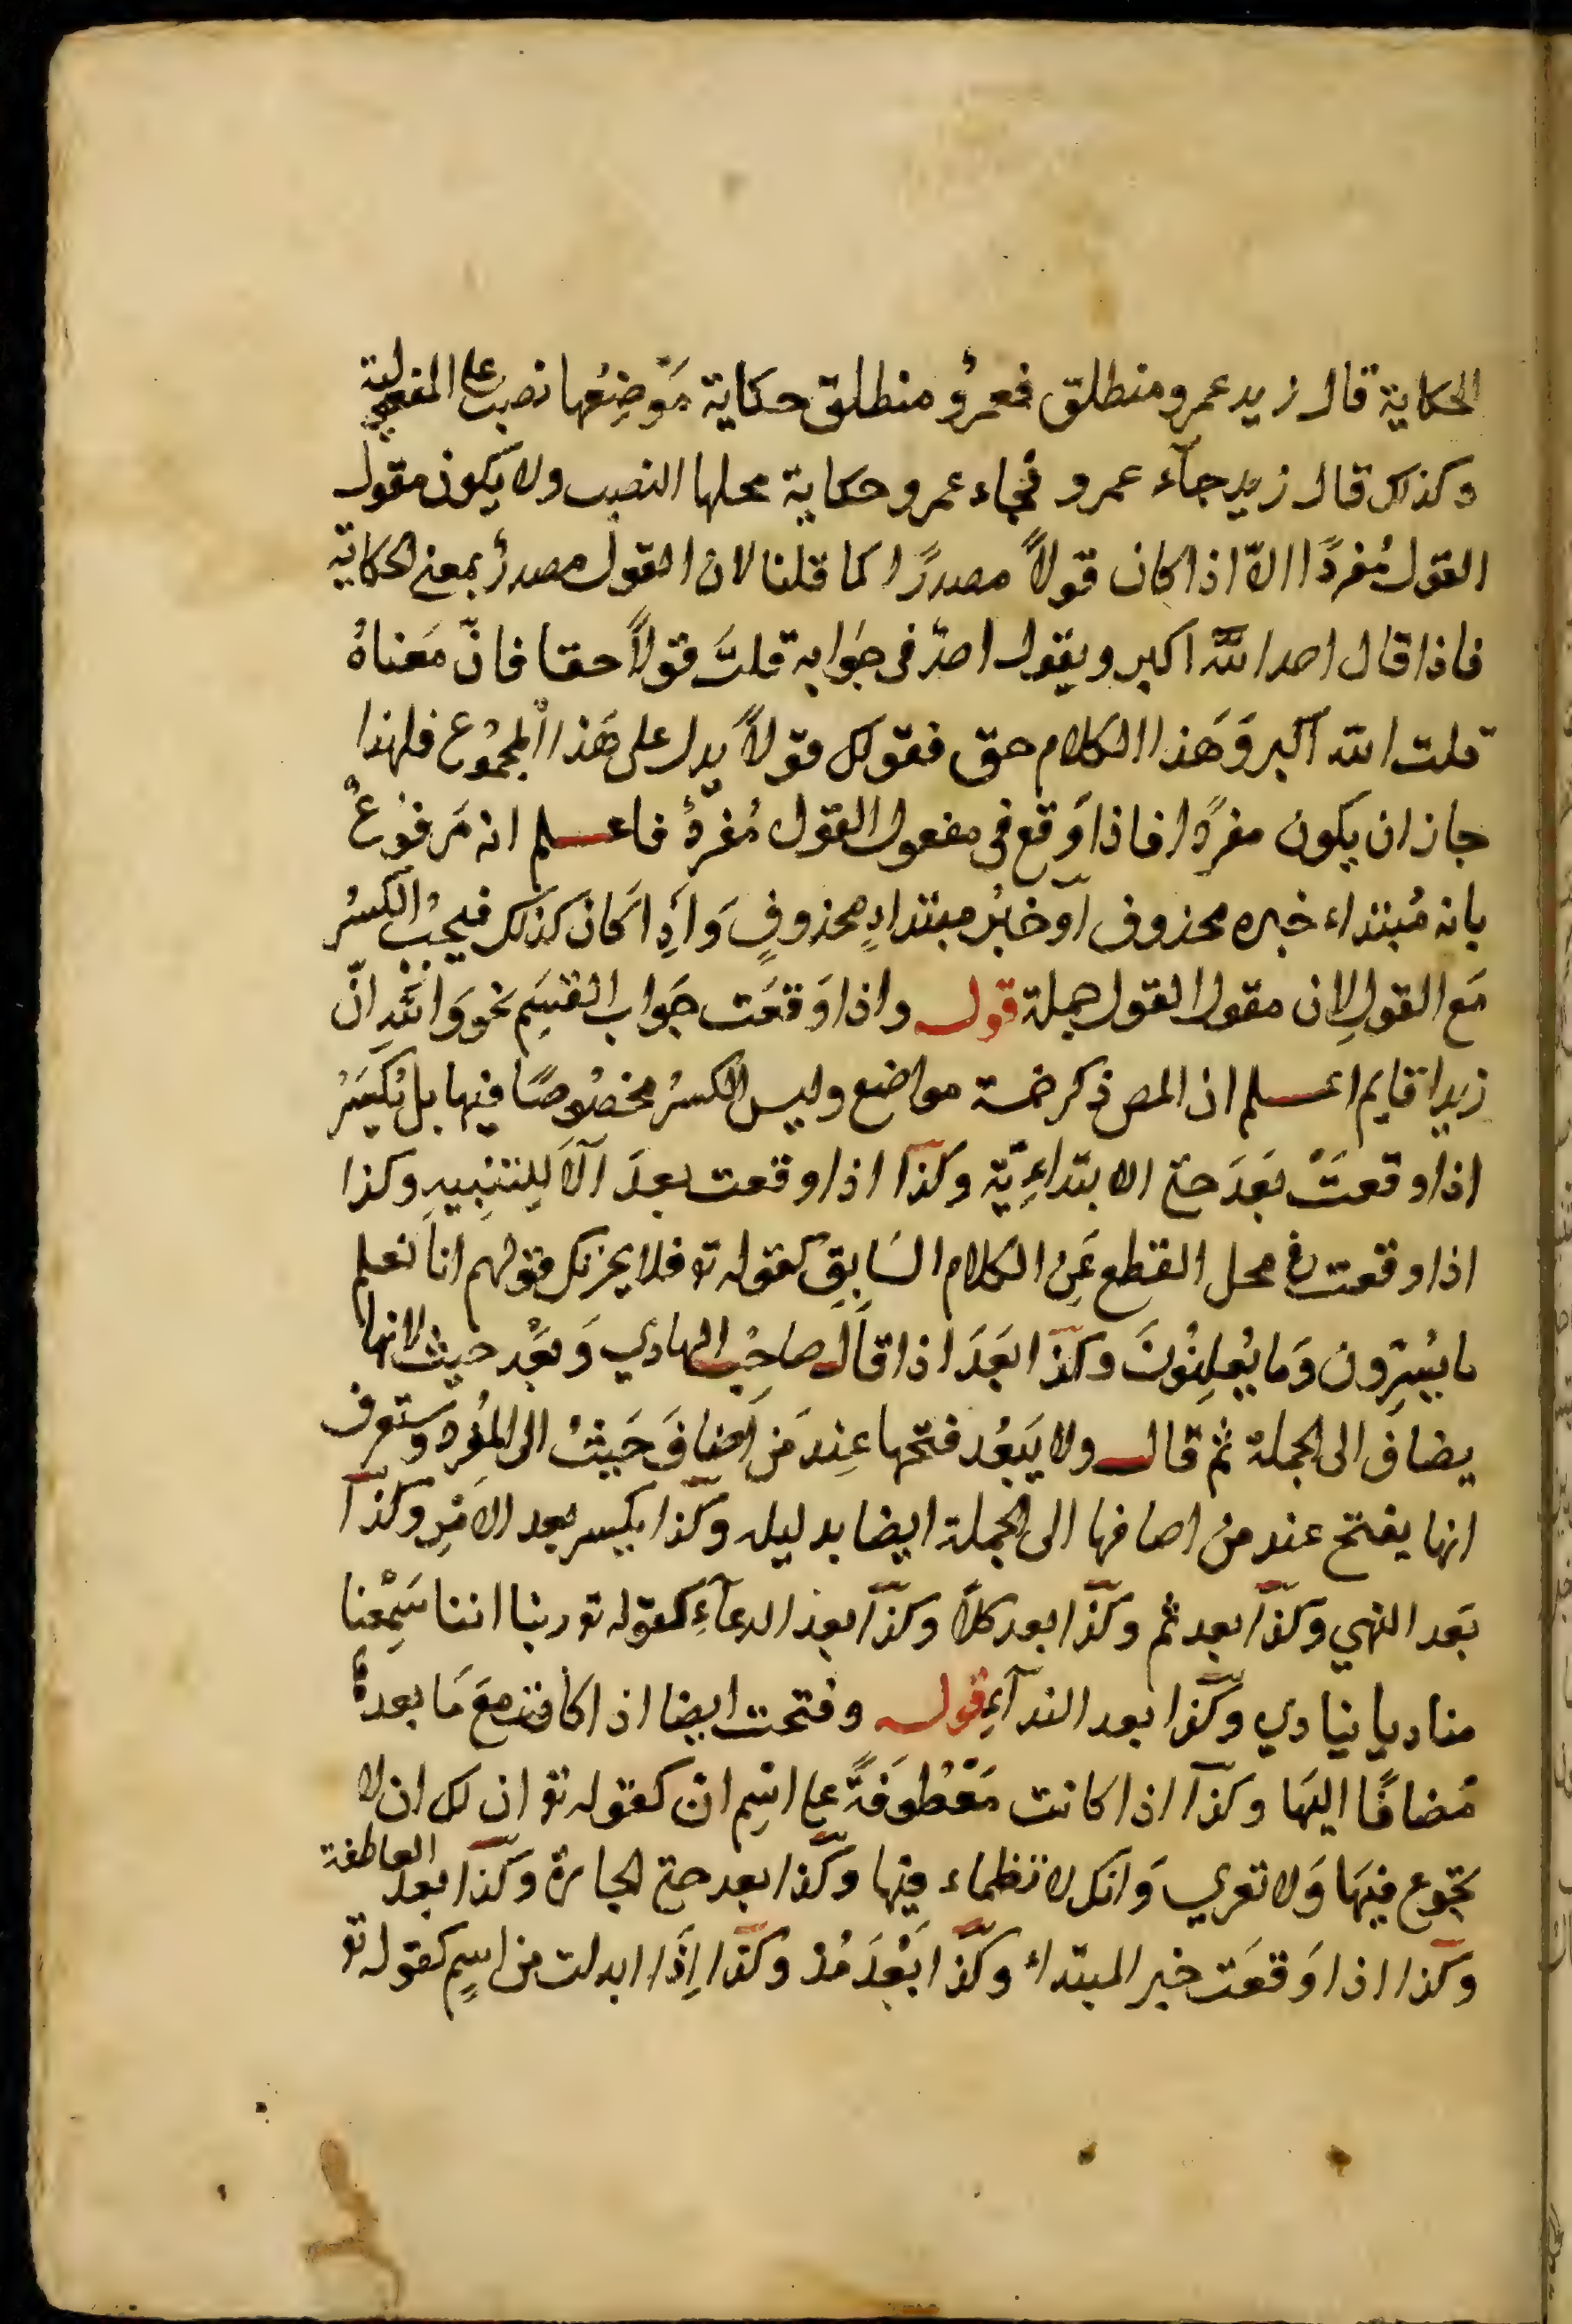 الحكاية قال زيد عمرو منطلق فعمرٌو منطلق حكاية مَوْضِعُها نصب على المفعولية
وكذلك قال زيد جآء عمرو فجاء عمرو حكاية محلها النصب ولا يكون مقول
القول مُفردًا الاّ اذا كان قولاً مصدرًا كما قلنا لان القول مصدرٌ بمعنى الحكاية
فاذا قال احد الله اكبر ويقول احدٌ فى جَوابه قلتَ قولاً حقا فانّ مَعناهُ
قلت الله اكبر وَهَذا الكلام حق فقولك قولاً يدل على هَذا المجمُوع فلهذا
جاز ان يكون مفردًا فاذا وَقع فى مفعول القول مُفردٌ فاعلم انه مَرفوُعٌ
بانه مُبتداء خبره محذوف اَو خبرُ مبتداءٍ محذوفٍ وَاِذا كانَ كذلك فيجبُ الكسرُ
مَع القولِ لِان مقول القول جملة قوله واذا وَقعَت جَواب القسَمِ نحو وَاللهِ انّ
زيدا قايم اعلم ان المص ذكر خمسة مواضع وليس الكسرُ مخصُوصًا فيها بل يُكسَرُ
اذا وقعتْ بَعدَ حتى الابتداءِيّة وكذا اذا وقعت بعدَ اَلاَ لِلتنبِيهِ وكذا
اذا وقعت فى محل القطع عَنِ الكلام السَابِقِ كقوله تو فلا يحزنك قولهم انا نعلم
ما يُسِرّون وَما يُعلِنُونَ وكذا بَعدَ اذا قال صاحِبُ الهادي وَبَعْد حيث لانها
يضاف الى الجملة ثم قال ولا يَبعُد فتحها عِند مَن اَضافَ حَيثُ الى المُفرد وستعرف
انها يفتح عند من اضافها الى الجملة ايضا بدليله وكذا يكسر بعد الامْرِ وكذا
بَعد النهي وكذا بعد ثم وكذا بعد كلاّ وكذا بعد الدعآءِ كقوله تو ربنا اننا سَمِعْنا
مناديا ينادي وكذا بعد الندآءِ قوله وفتحت ايضا اذا كانت معَ مَا بعدهُ
مُضافًا اليهَا وكذا اذا كانت مَعْطُوفَةً على اسْمِ انّ كقوله تو ان لك ان لا
تجوع فيهَا وَلا تعري وَانك لا تظماء فيها وكذا بعد حتى الجارة وكذا بعد العاطفة
وكذا اذا وَقعَت خبر المبتداء وكذا بَعْدَ مُذ وكذا اِذَا ابدلت من اسمٍ كقوله تو